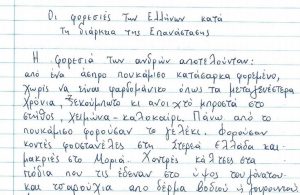 Οι φορεσιές των Ελλήνων κατά
τη διάρκεια της Επανάστασης
Η φορεσιά των ανδρών αποτελούνταν:
από ένα άσπρο πουκάμισο κατάσαρκα φορεμένο,
χωρίς να είναι φαρδομάνικο όπως τα μεταγενέστερα
χρόνια, ξεκούμπωτο κι ανοιχτό μπροστά στο
στήθος, χειμώνα-καλοκαίρι. Πάνω από το
πουκάμισο φορούσαν το γελέκι. Φορούσαν
κοντές φουστανέλες στη Στερεά Ελλάδα και
μακριές στο Μοριά. Χοντρές κάλτσες στα
πόδια που τις έδεναν στο ύψος του γόνατου
και τσαρούχια από δέρμα βοδιού ή γουρουνιού